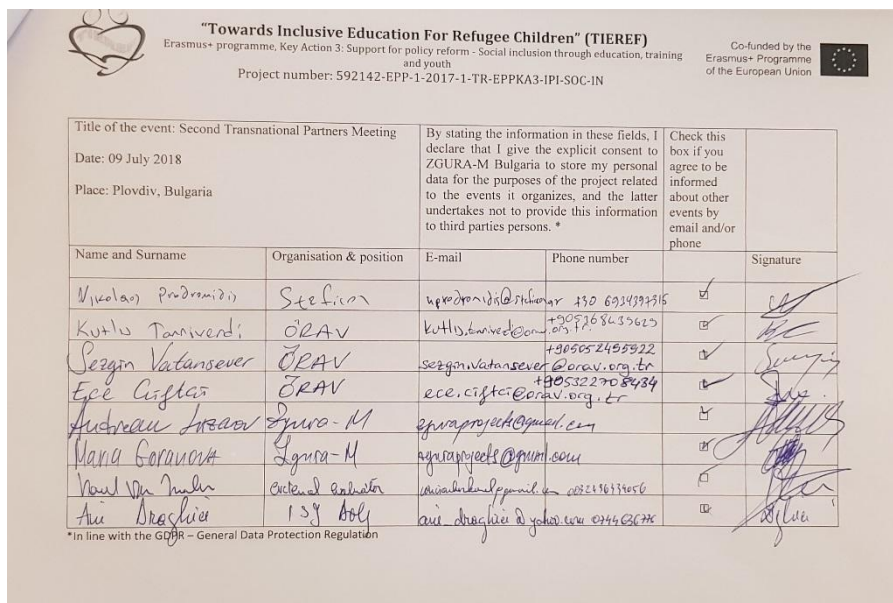 "Towards Inclusive Education For Refugee Children" (TIEREF)
Erasmus+ programme, Key Action 3: Support for policy reform - Social inclusion through education, training
and youth
Project number: 592142-EPP-1-2017-1-TR-EPPKA3-IPI-SOC-IN
Co-funded by the
Erasmus+ Programme
of the European Union
Title of the event: Second Transnational Partners Meeting
Date: 09 July 2018
Place: Plovdiv, Bulgaria
By stating the information in these fields, I
declare that I give the explicit consent to
ZGURA-M Bulgaria to store my personal
data for the purposes of the project related
to the events it organizes, and the latter
undertakes not to provide this information
to third parties persons. *
Check this
box if you
agree to be
informed
about other
events by
email and/or
phone
Name and Surname Organisation & position E-mail Phone number Signature
Nikolaos Prodromidis Steficon +30 6934397315
Kutlu Tanrıverdi ÖRAV
Sezgin Vatansever ÖRAV sezgin.vatansever@orav.org.tr +905052455922
Ece Çiftçi ÖRAV ece.ciftci@orav.org.tr +905322708434
Zgura-M zguraprojects@gmail.com
Maria Goranova Zgura-M zguraprojects@gmail.com
external evaluator
ISJ Dolj
*In line with the GDPR – General Data Protection Regulation